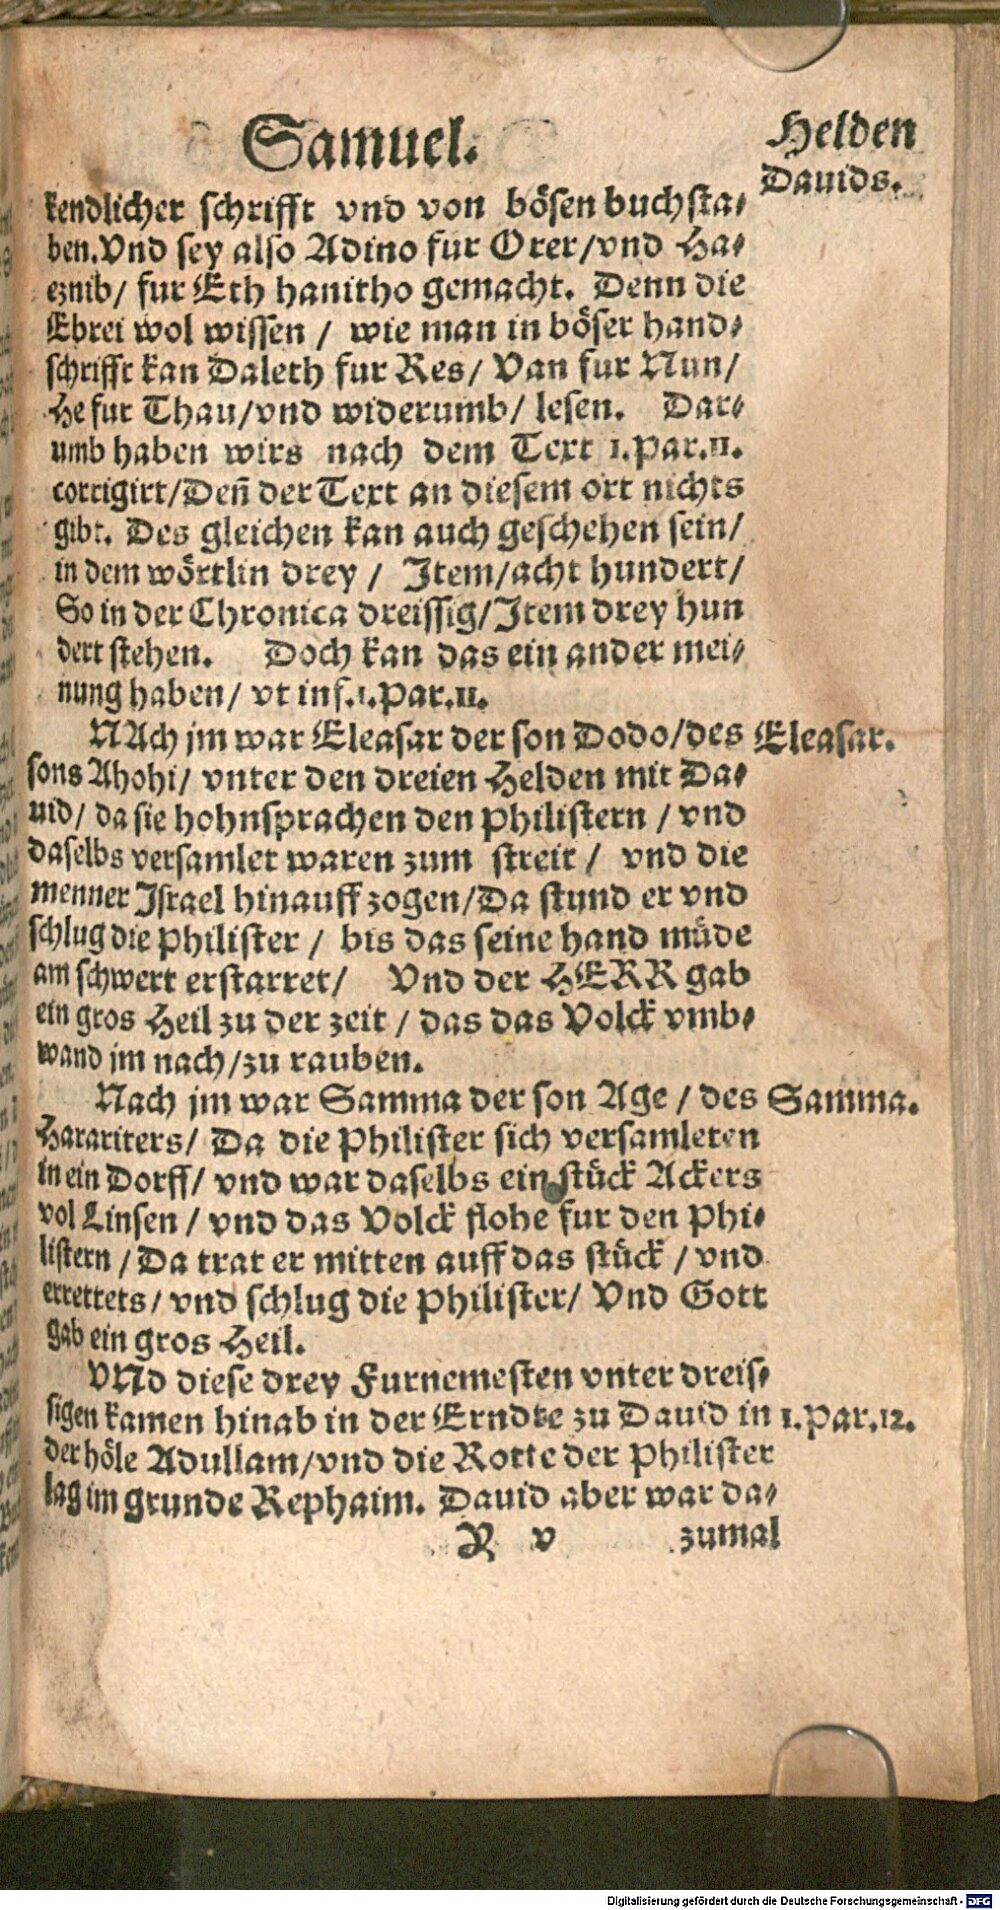 Samuel.
Helden
Dauids.
kendlicher schrifft vnd von bösen buchsta⸗
ben. Vnd sey also Adino fur Orer/ vnd Ha⸗
eznib/ fur Eth hanitho gemacht. Denn die
Ebrei wol wissen / wie man in böser hand⸗
schrifft kan Daleth fur Res/ Van fur Nun/
He fur Thau/ vnd widerumb/ lesen. Dar⸗
umb haben wirs nach dem Text 1. Par. 11.
corrigirt/ Deñ der Text an diesem ort nichts
gibt. Des gleichen kan auch geschehen sein/
in dem wörtlin drey / Item/ acht hundert/
So in der Chronica dreissig/ Item drey hun
dert stehen. Doch kan das ein ander mei⸗
nung haben/ vt inf. 1. Par. 11.
NAch jm war Eleasar der son Dodo/ des Eleasar.
sons Ahohi/ vnter den dreien Helden mit Da⸗
uid/ da sie hohnsprachen den Philistern / vnd
daselbs versamlet waren zum streit / vnd die
menner Israel hinauff zogen/ Da stund er vnd
schlug die Philister / bis das seine hand müde
am schwert erstarret/ Vnd der HERR gab
ein gros Heil zu der zeit / das das Volck vmb⸗
wand jm nach/ zu rauben.
Nach jm war Samma der son Age / des Samma.
Harariters/ Da die Philister sich versamleten
in ein Dorff/ vnd war daselbs ein stück Ackers
vol Linsen / vnd das Volck flohe fur den Phi⸗
listern / Da trat er mitten auff das stück / vnd
errettets/ vnd schlug die Philister/ Vnd Gott
gab ein gros Heil.
VNd diese drey Furnemesten vnter dreis⸗
sigen kamen hinab in der Erndte zu Dauid in 1. Par. 12.
der höle Adullam/ vnd die Rotte der Philister
lag im grunde Rephaim. Dauid aber war da⸗
R v zumal
Digitalisierung gefördert durch die Deutsche Forschungsgemeinschaft - DFG